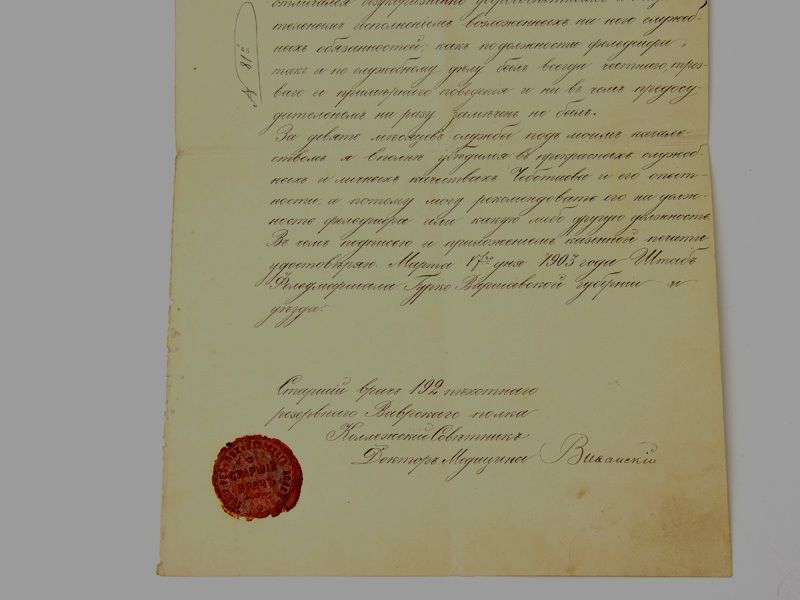 отличался безукоризненно добросовѣстнымъ и
тельнымъ исполненіемъ возложенныхъ на него служеб-
ныхъ обязанностей, какъ по должности фельдшера,
такъ и по служебному дѣлу былъ всегда честнаго, трез-
ваго и примѣрнаго поведенія и ни въ чемъ предосу-
дительномъ ни разу замѣченъ не былъ.
За девять мѣсяцевъ службы подъ моимъ началь-
ствомъ я вполнѣ убѣдился въ прекрасныхъ служеб-
ныхъ и личныхъ качествахъ Чеботаева и его опыт-
ности, а потому могу рекомендовать его на долж-
ность фельдшера или какую либо другую должность.
Въ чемъ подписью и приложеніемъ казенной печати
удостовѣряю. Марта 17го дня 1903 года Штабъ
Фельдмаршала Гурко Варшавской губерніи и
уѣзда.
№ 81
Старшій врачъ 192 пѣхотнаго
резервнаго Ваврскаго полка
Коллежскій Совѣтникъ
Докторъ Медицины
СТАРШІЙ
ВРАЧЪ